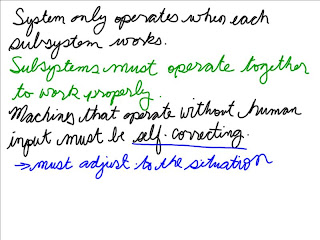 System only operates when each
subsystem works.
Subsystems must operate together
to work properly.
Machines that operate without human
input must be self-correcting.
→ must adjust to the situation